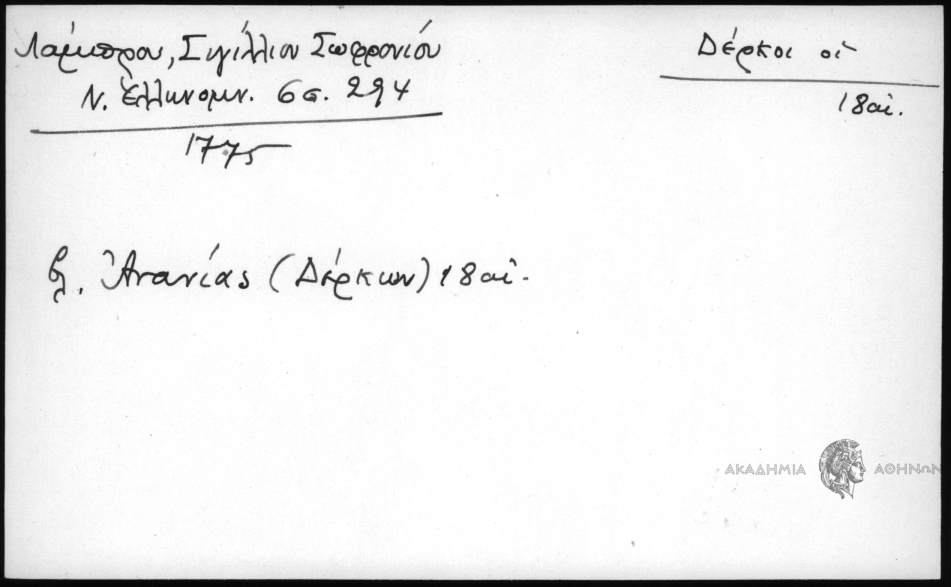 Λάμπρου, Σιγίλλιον Σωφρονίου
Ν. Ἑλληνομν. 6 σ. 294
1775
Δέρκοι οἱ
18 αἰ.
βλ. Ἀνανίας (Δέρκων) 18 αἰ.
ΑΚΑΔΗΜΙΑ ΑΘΗΝΩΝ